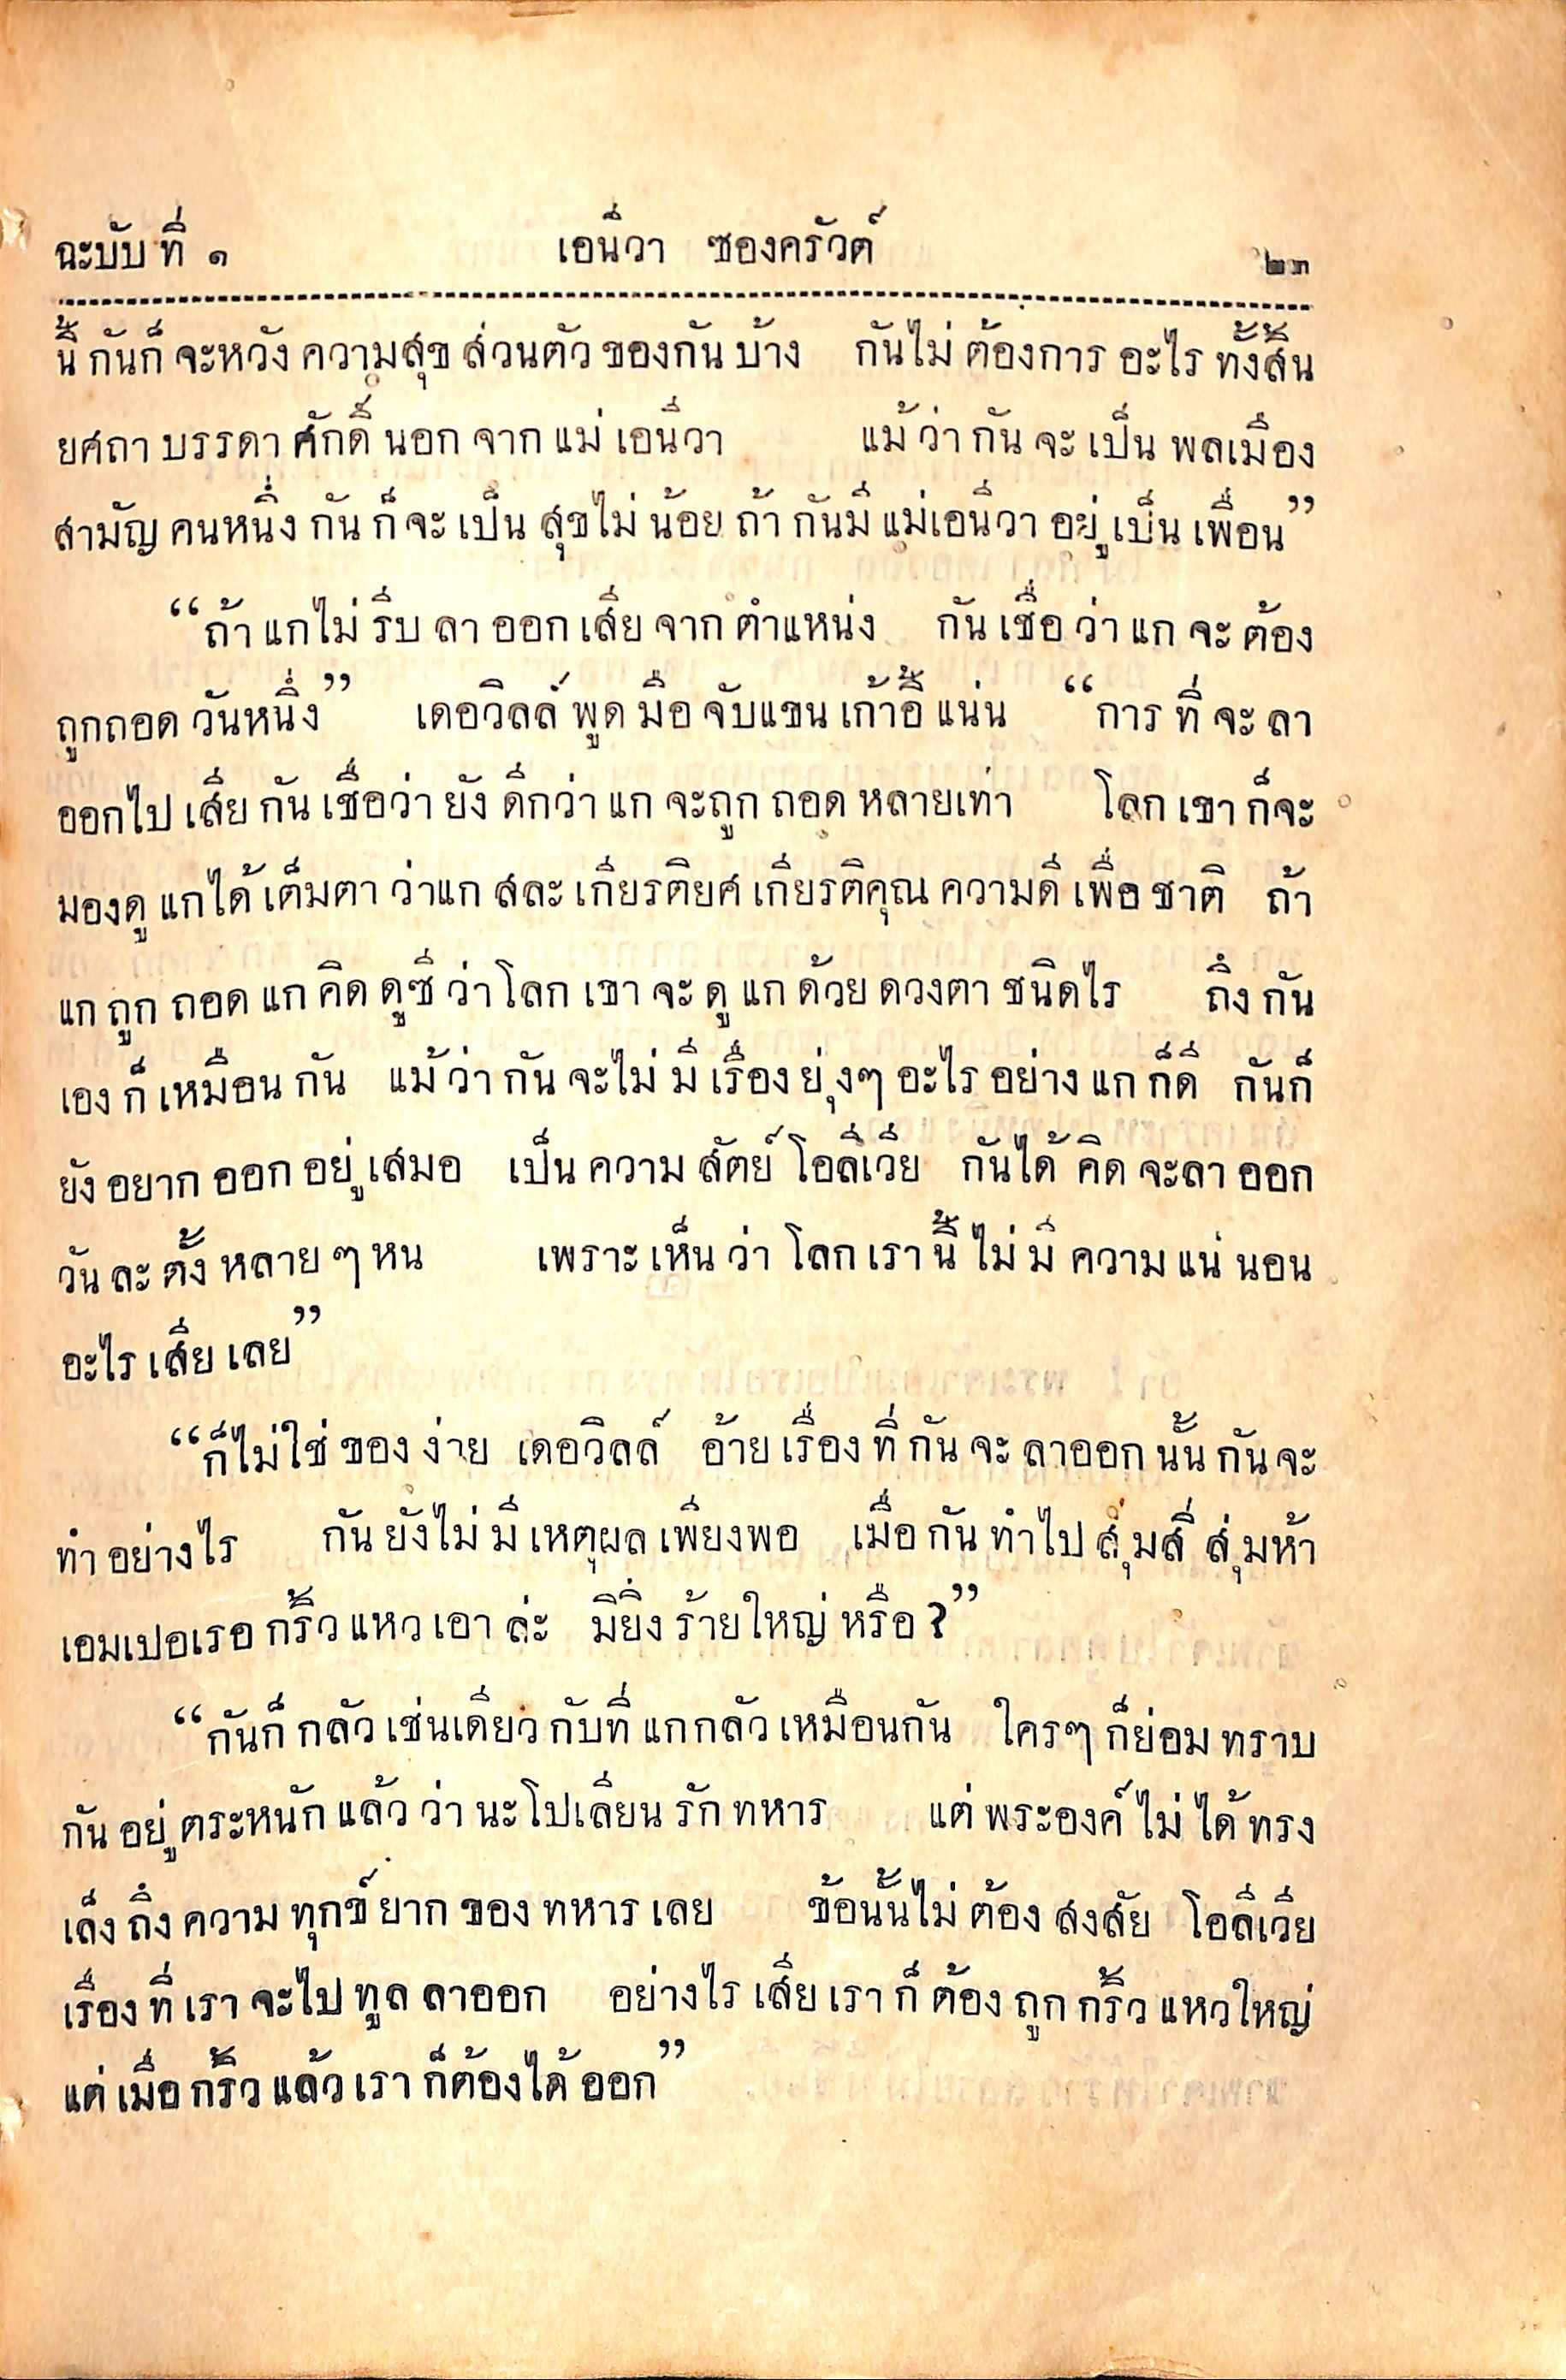 ฉะบับ ที่ ๑ เอนีวา ซองครัวต์ ๒๓
นี้ กันก็ จะหวัง ความสุข ส่วนตัว ของกัน บ้าง กันไม่ ต้องการ อะไร ทั้งสิ้น
ยศถา บรรดา ศักดิ์ นอก จาก แม่ เอนีวา แม้ ว่า กัน จะ เป็น พลเมือง
สามัญ คนหนึ่ง กัน ก็ จะ เป็น สุขไม่ น้อย ถ้า กันมี แม่เอนีวา อยู่ เป็น เพื่อน”
“ถ้า แกไม่ รีบ ลา ออก เสีย จาก ตำแหน่ง กัน เชื่อ ว่า แก จะ ต้อง
ถูกถอด วันหนึ่ง” เดอวิลล์ พูด มือ จับแขน เก้าอี้ แน่น “การ ที่ จะ ลา
ออกไป เสีย กัน เชื่อว่า ยัง ดีกว่า แก จะถูก ถอด หลายเท่า โลก เขา ก็จะ
มองดู แกได้ เต็มตา ว่าแก สละ เกียรติยศ เกียรติคุณ ความดี เพื่อ ชาติ ถ้า
แก ถูก ถอด แก คิด ดูซี ว่า โลก เขา จะ ดู แก ด้วย ดวงตา ชนิดไร ถึง กัน
เอง ก็ เหมือน กัน แม้ ว่า กัน จะไม่ มี เรื่อง ยุ่งๆ อะไร อย่าง แก ก็ดี กันก็
ยัง อยาก ออก อยู่ เสมอ เป็น ความ สัตย์ โอลีเวีย กันได้ คิด จะลา ออก
วัน ละ ตั้ง หลาย ๆ หน เพราะ เห็น ว่า โลก เรา นี้ ไม่ มี ความ แน่ นอน
อะไร เสีย เลย”
“ก็ไม่ใช่ ของ ง่าย เดอวิลล์ อ้าย เรื่อง ที่ กัน จะ ลาออก นั้น กัน จะ
ทำ อย่างไร กัน ยังไม่ มี เหตุผล เพียงพอ เมื่อ กัน ทำไป สุ่มสี่ สุ่มห้า
เอมเปอเรอ กริ้ว แหว เอา ล่ะ มิยิ่ง ร้าย ใหญ่ หรือ ?”
“กันก็ กลัว เช่นเดียว กับที่ แกกลัว เหมือนกัน ใครๆ ก็ย่อม ทราบ
กัน อยู่ ตระหนัก แล้ว ว่า นะโปเลียน รัก ทหาร แต่ พระองค์ ไม่ ได้ ทรง
เล็ง ถึง ความ ทุกข์ ยาก ของ ทหาร เลย ข้อนั้นไม่ ต้อง สงสัย โอลีเวีย
เรื่อง ที่ เรา จะไป ทูล ลาออก อย่างไร เสีย เรา ก็ ต้อง ถูก กริ้ว แหวใหญ่
แต่ เมื่อ กริ้ว แล้ว เรา ก็ต้องได้ ออก”